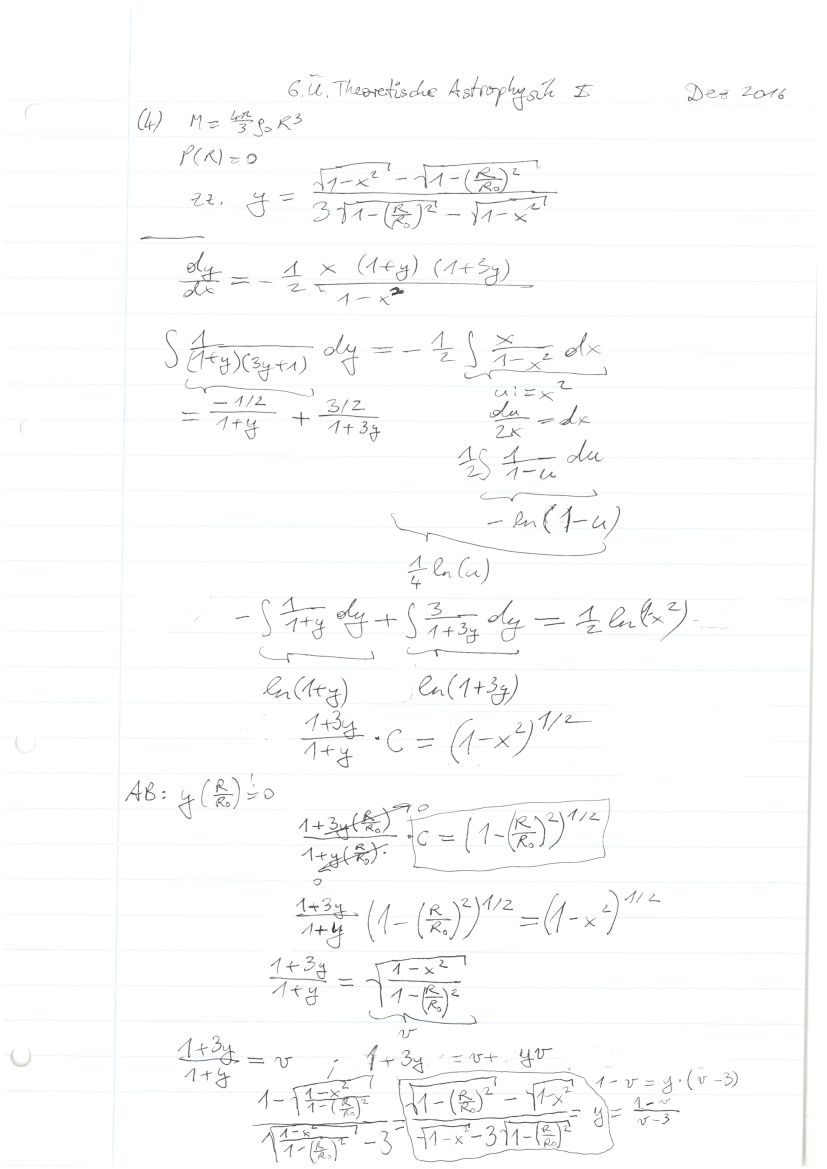 6.Ü. Theoretische Astrophysik I Dez 2016
(4) M = 4π/3 ρ₀ R³
P(R) = 0
zz. y = (√(1-x²) - √(1-(R/R₀)²)) / (3√(1-(R/R₀)²) - √(1-x²))
dy/dx = - 1/2 x (1+y) (1+3y) / (1-x²)
∫ 1/((1+y)(3y+1)) dy = - 1/2 ∫ x/(1-x²) dx
u := x²
= (-1/2)/(1+y) + (3/2)/(1+3y) du/2x = dx
1/2 ∫ 1/(1-u) du
- ln(1-u)
1/4 ln(u)
- ∫ 1/(1+y) dy + ∫ 3/(1+3y) dy = 1/2 ln(1-x²)
ln(1+y) ln(1+3y)
(1+3y)/(1+y) · C = (1-x²)^(1/2)
AB: y(R/R₀) != 0
(1+3y(R/R₀))/(1+y(R/R₀)) · C = (1-(R/R₀)²)^(1/2)
0
0
(1+3y)/(1+y) (1-(R/R₀)²)^(1/2) = (1-x²)^(1/2)
(1+3y)/(1+y) = √((1-x²)/(1-(R/R₀)²))
v
(1+3y)/(1+y) = v ; 1+3y = v + yv
1-v = y·(v-3)
(1-√((1-x²)/(1-(R/R₀)²)))/(√((1-x²)/(1-(R/R₀)²)) - 3) = (√(1-(R/R₀)²) - √(1-x²))/(√(1-x²) - 3√(1-(R/R₀)²)) = y = (1-v)/(v-3)